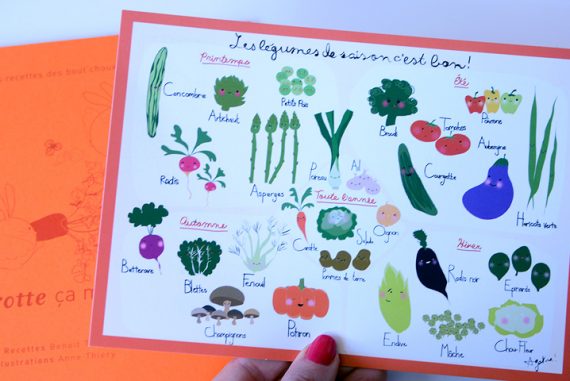 Les légumes de saison c'est bon!
Printemps
Concombre
Artichaut
Petits Pois
Radis
Asperges
Poireau
Ail
Été
Brocoli
Tomates
Poivrons
Courgette
Aubergine
Haricots Verts
Toute l'année
Carotte
Salade
Oignon
Pommes de terre
Automne
Betterave
Blettes
Fenouil
Champignons
Potiron
Hiver
Radis noir
Epinards
Endive
Mâche
Chou-Fleur
s recettes des bout'chou
rotte ça n
Recettes Benoît
llustrations Anne Thiéry